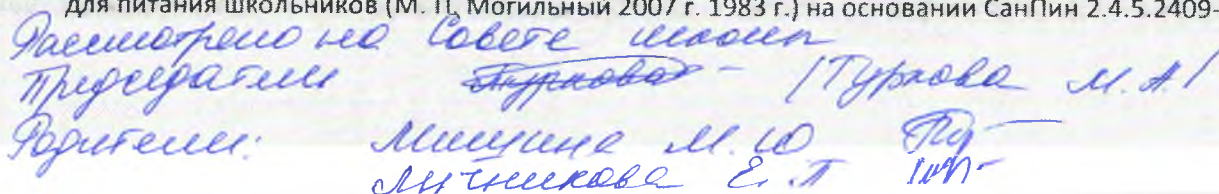 для питания школьников (М. П. Могильный 2007 г. 1983 г.) на основании СанПин 2.4.5.2409-
Рассмотрено на Совете школы
Председатель Туркова - /Туркова М. А./
Родители: Мишина М. Ю
Лучникова Е. П